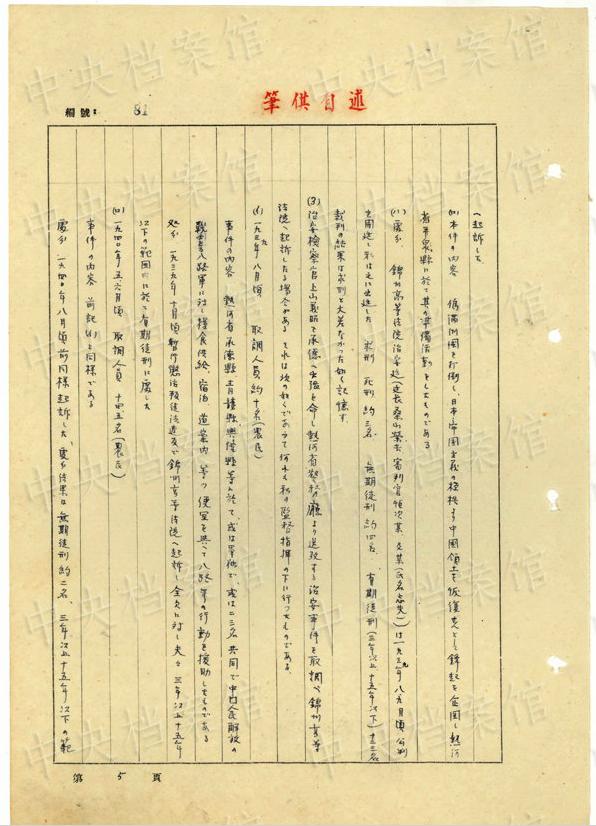 筆供自述
編號：81
へ起訴した
(ロ)本件の内容 偽満洲国を打倒し、日本帝国主義の桎梏より中国領土を恢復せんとして蜂起を企図し熱河
省平泉縣に於て其の準備活動をしたものである
(ハ)處分 錦州高等法院治安庭(庭長桑山榮 審判官 次某 某(氏名忘失))は一九三九年八、九月頃公判
を開廷し私は之に立廷した 求刑 死刑 約三名 無期徒刑 約四名 有期徒刑(三年以上十五年以下)十二、三名
裁判の結果は求刑と大差なかった如く記憶す
(3)治安検察官上山義昭を承徳へ出張を命じ熱河省警務廳より送致する治安事件を取調べ錦州高等
法院へ起訴したる場合がある それは次の如くであって何れも私の監督指揮の下に行ったものである
(イ)一九三九年八月頃 取調人員 約十名(農民)
事件の内容 熱河省承徳縣青龍縣興隆縣等に於て、或は単独で、或は二、三名共同で中国人民解放の
八路軍に対し糧食供給、宿泊、道案内、等の便宜を與へて八路軍の行動を援助したものである
処分 一九三九年十月頃暫行懲治叛徒法違反で錦州高等法院へ起訴し全員に対し夫々三年以上十五年
以下の範囲内に於て有期徒刑に處した
(ロ)一九四〇年五、六月頃 取調人員 十四、五名(農民)
事件の内容 前記(イ)と同様である
處分 一九四〇年八月頃前同様起訴した、裁判結果は無期徒刑約二名、三年以上十五年以下の範
第 5 頁
中央档案馆